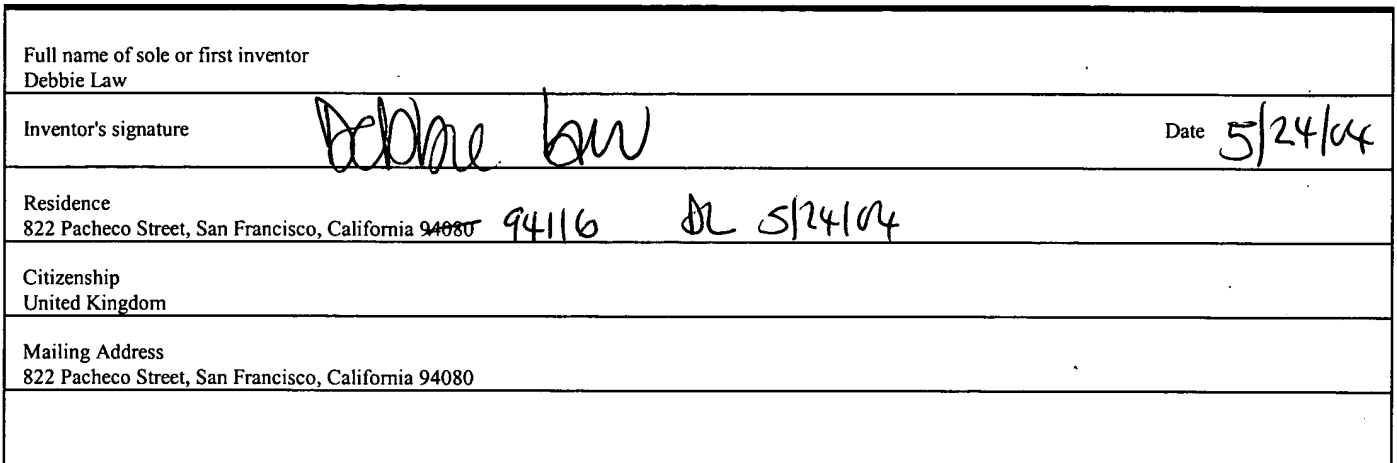 Full name of sole or first inventor
Debbie Law
Inventor's signature Debbie Law Date 5/24/04
Residence
822 Pacheco Street, San Francisco, California 94080 94116 DL 5/24/04
Citizenship
United Kingdom
Mailing Address
822 Pacheco Street, San Francisco, California 94080